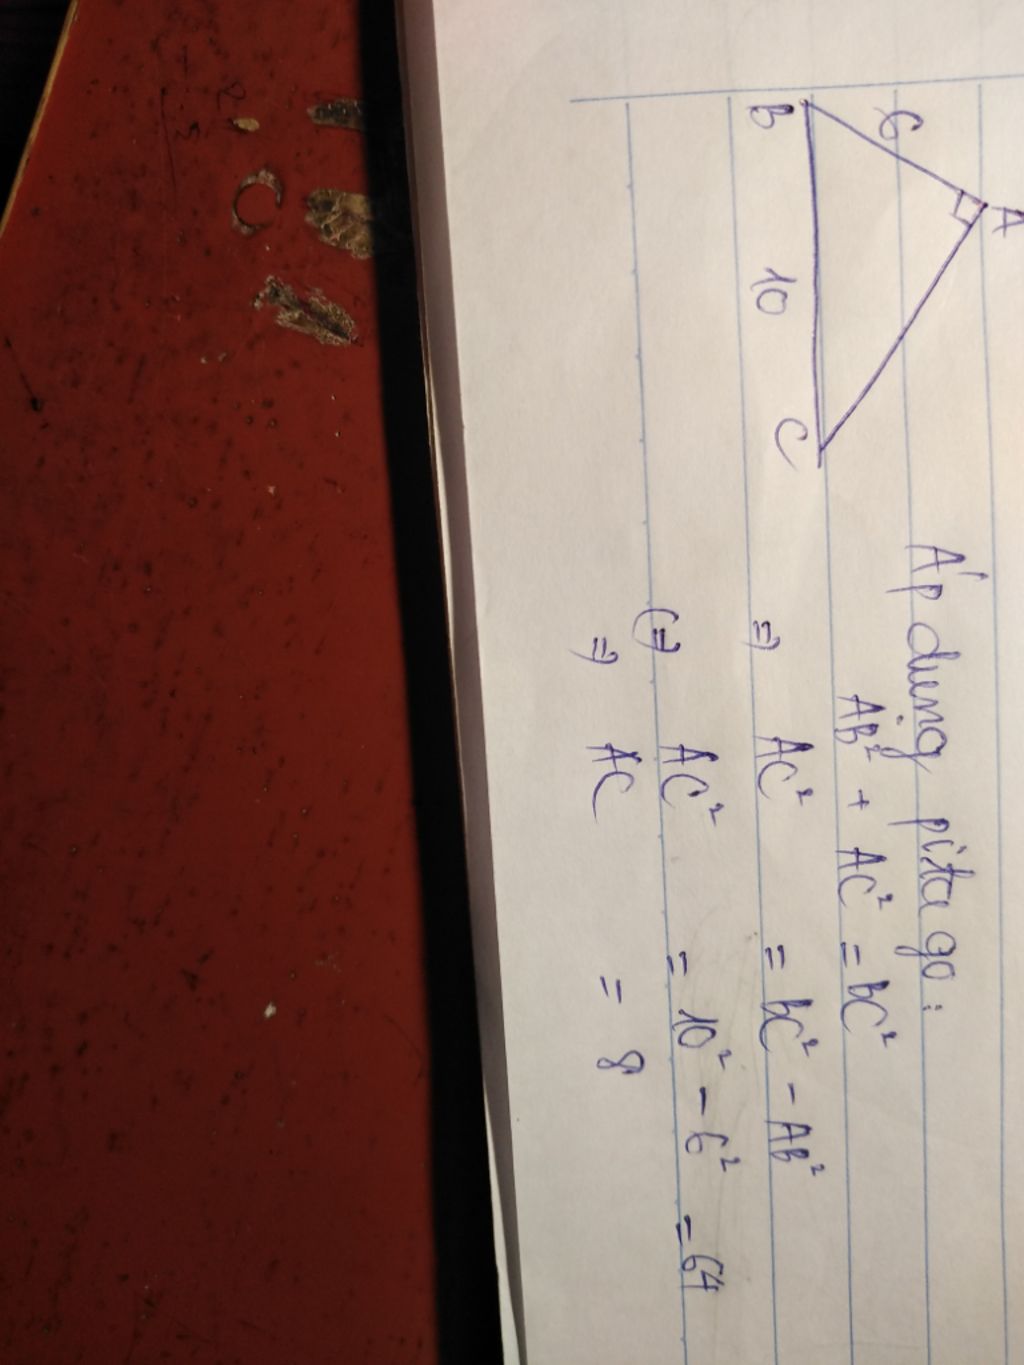 A
6
B
10
C
Áp dụng pitago:
AB² + AC² = BC²
=> AC² = BC² - AB²
(=> AC² = 10² - 6² = 64
=> AC = 8